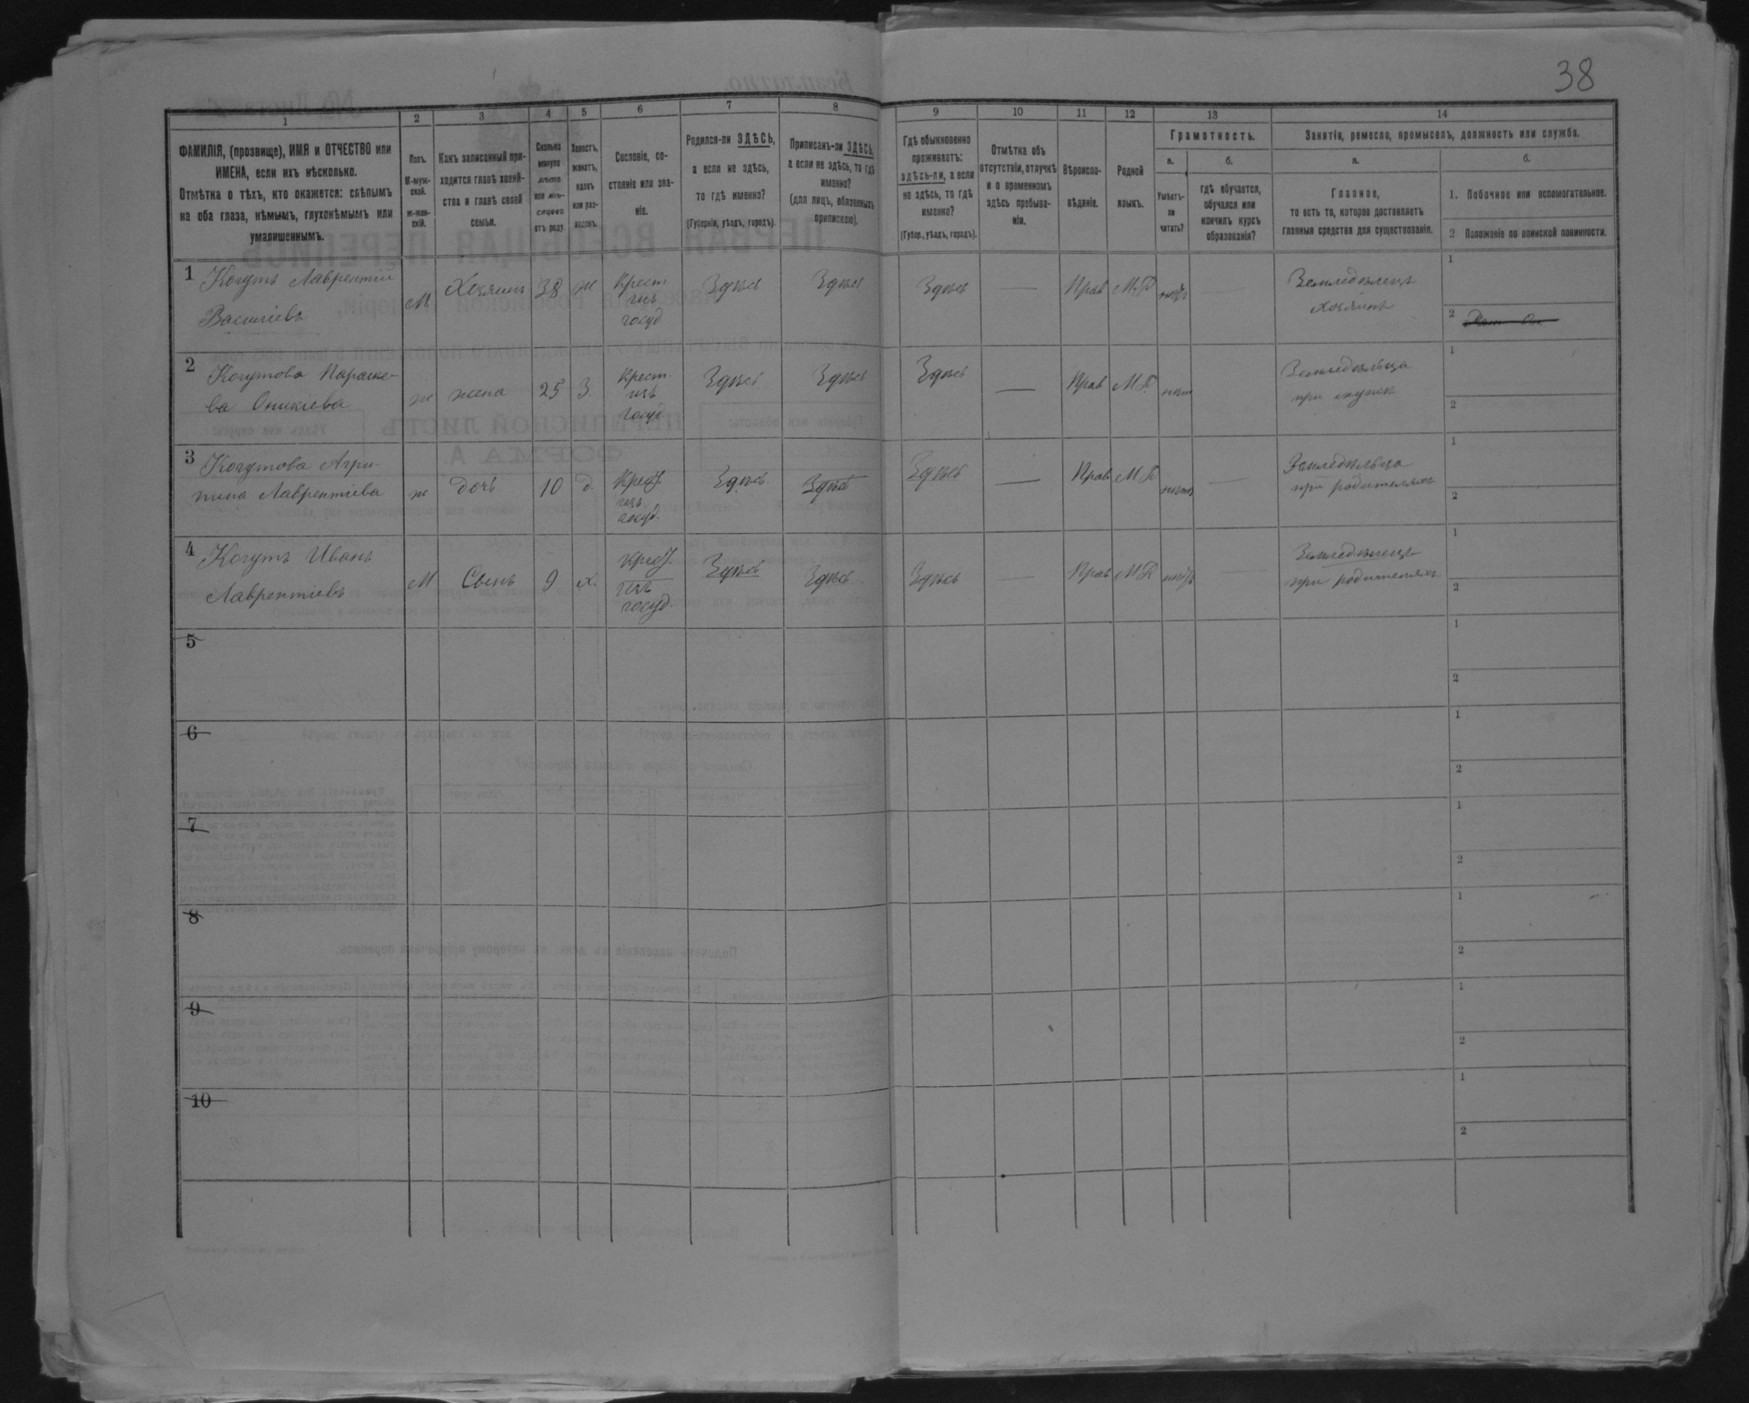 38
1
2
3
4
5
6
7
8
9
10
11
12
13
14
ФАМИЛІЯ, (прозвище), ИМЯ и ОТЧЕСТВО или
ИМЕНА, если ихъ нѣсколько.
Отмѣтка о тѣхъ, кто окажется: слѣпымъ
на оба глаза, нѣмымъ, глухонѣмымъ или
умалишеннымъ.
Полъ.
М-муж-
ской.
Ж-жен-
скій.
Какъ записанный при-
ходится главѣ хозяй-
ства и главѣ своей
семьи.
Сколько
минуло
лѣтъ
или мѣ-
сяцевъ
отъ роду.
Холостъ,
женатъ,
вдовъ
или раз-
веденъ.
Сословіе, со-
стояніе или зва-
ніе.
Родился-ли ЗДѢСЬ,
а если не здѣсь,
то гдѣ именно?
(Губернія, уѣздъ, городъ).
Приписанъ-ли ЗДѢСЬ,
а если не здѣсь, то гдѣ
именно?
(для лицъ, обязанныхъ
припискою).
Гдѣ обыкновенно
проживаетъ:
здѣсь-ли, а если
не здѣсь, то гдѣ
именно?
(Губер., уѣздъ, городъ).
Отмѣтка объ
отсутствіи, отлучкѣ
и о временномъ
здѣсь пребыва-
ніи.
Вѣроиспо-
вѣданіе.
Родной
языкъ.
Грамотность.
а.
б.
Умѣетъ-
ли
читать?
гдѣ обучается,
обучался или
кончилъ курсъ
образованія?
Занятія, ремесло, промыселъ, должность или служба.
а.
б.
Главное,
то есть то, которое доставляетъ
главныя средства для существованія.
1. Побочное или вспомогательное.
2 Положеніе по воинской повинности.
1 Когутъ Лаврентій
Васильевъ
М Хозяинъ 38 ж Крест.
изъ
госуд
Здѣсь Здѣсь Здѣсь — Прав М.Р. нѣтъ —
Земледѣлецъ
хозяинъ
1
2
2 Когутова Параске-
ва Оникіева
ж жена 25 З. Крест.
изъ
госуд
Здѣсь Здѣсь Здѣсь — Прав М.Р. нѣтъ
Земледѣльца
при мужѣ
1
2
3 Когутова Агри-
пина Лаврентіева
ж дочь 10 д. Крест.
изъ
госуд.
Здѣсь Здѣсь Здѣсь — Прав М.Р. нѣтъ —
Земледѣльца
при родителяхъ
1
2
4 Когутъ Иванъ
Лаврентіевъ
М Сынъ 9 х. Крест.
изъ
госуд.
Здѣсь Здѣсь Здѣсь — Прав М.Р. нѣтъ —
Земледѣлецъ
при родителяхъ
1
2
5
1
2
6
1
2
7
1
2
8
1
2
9
1
2
10
1
2